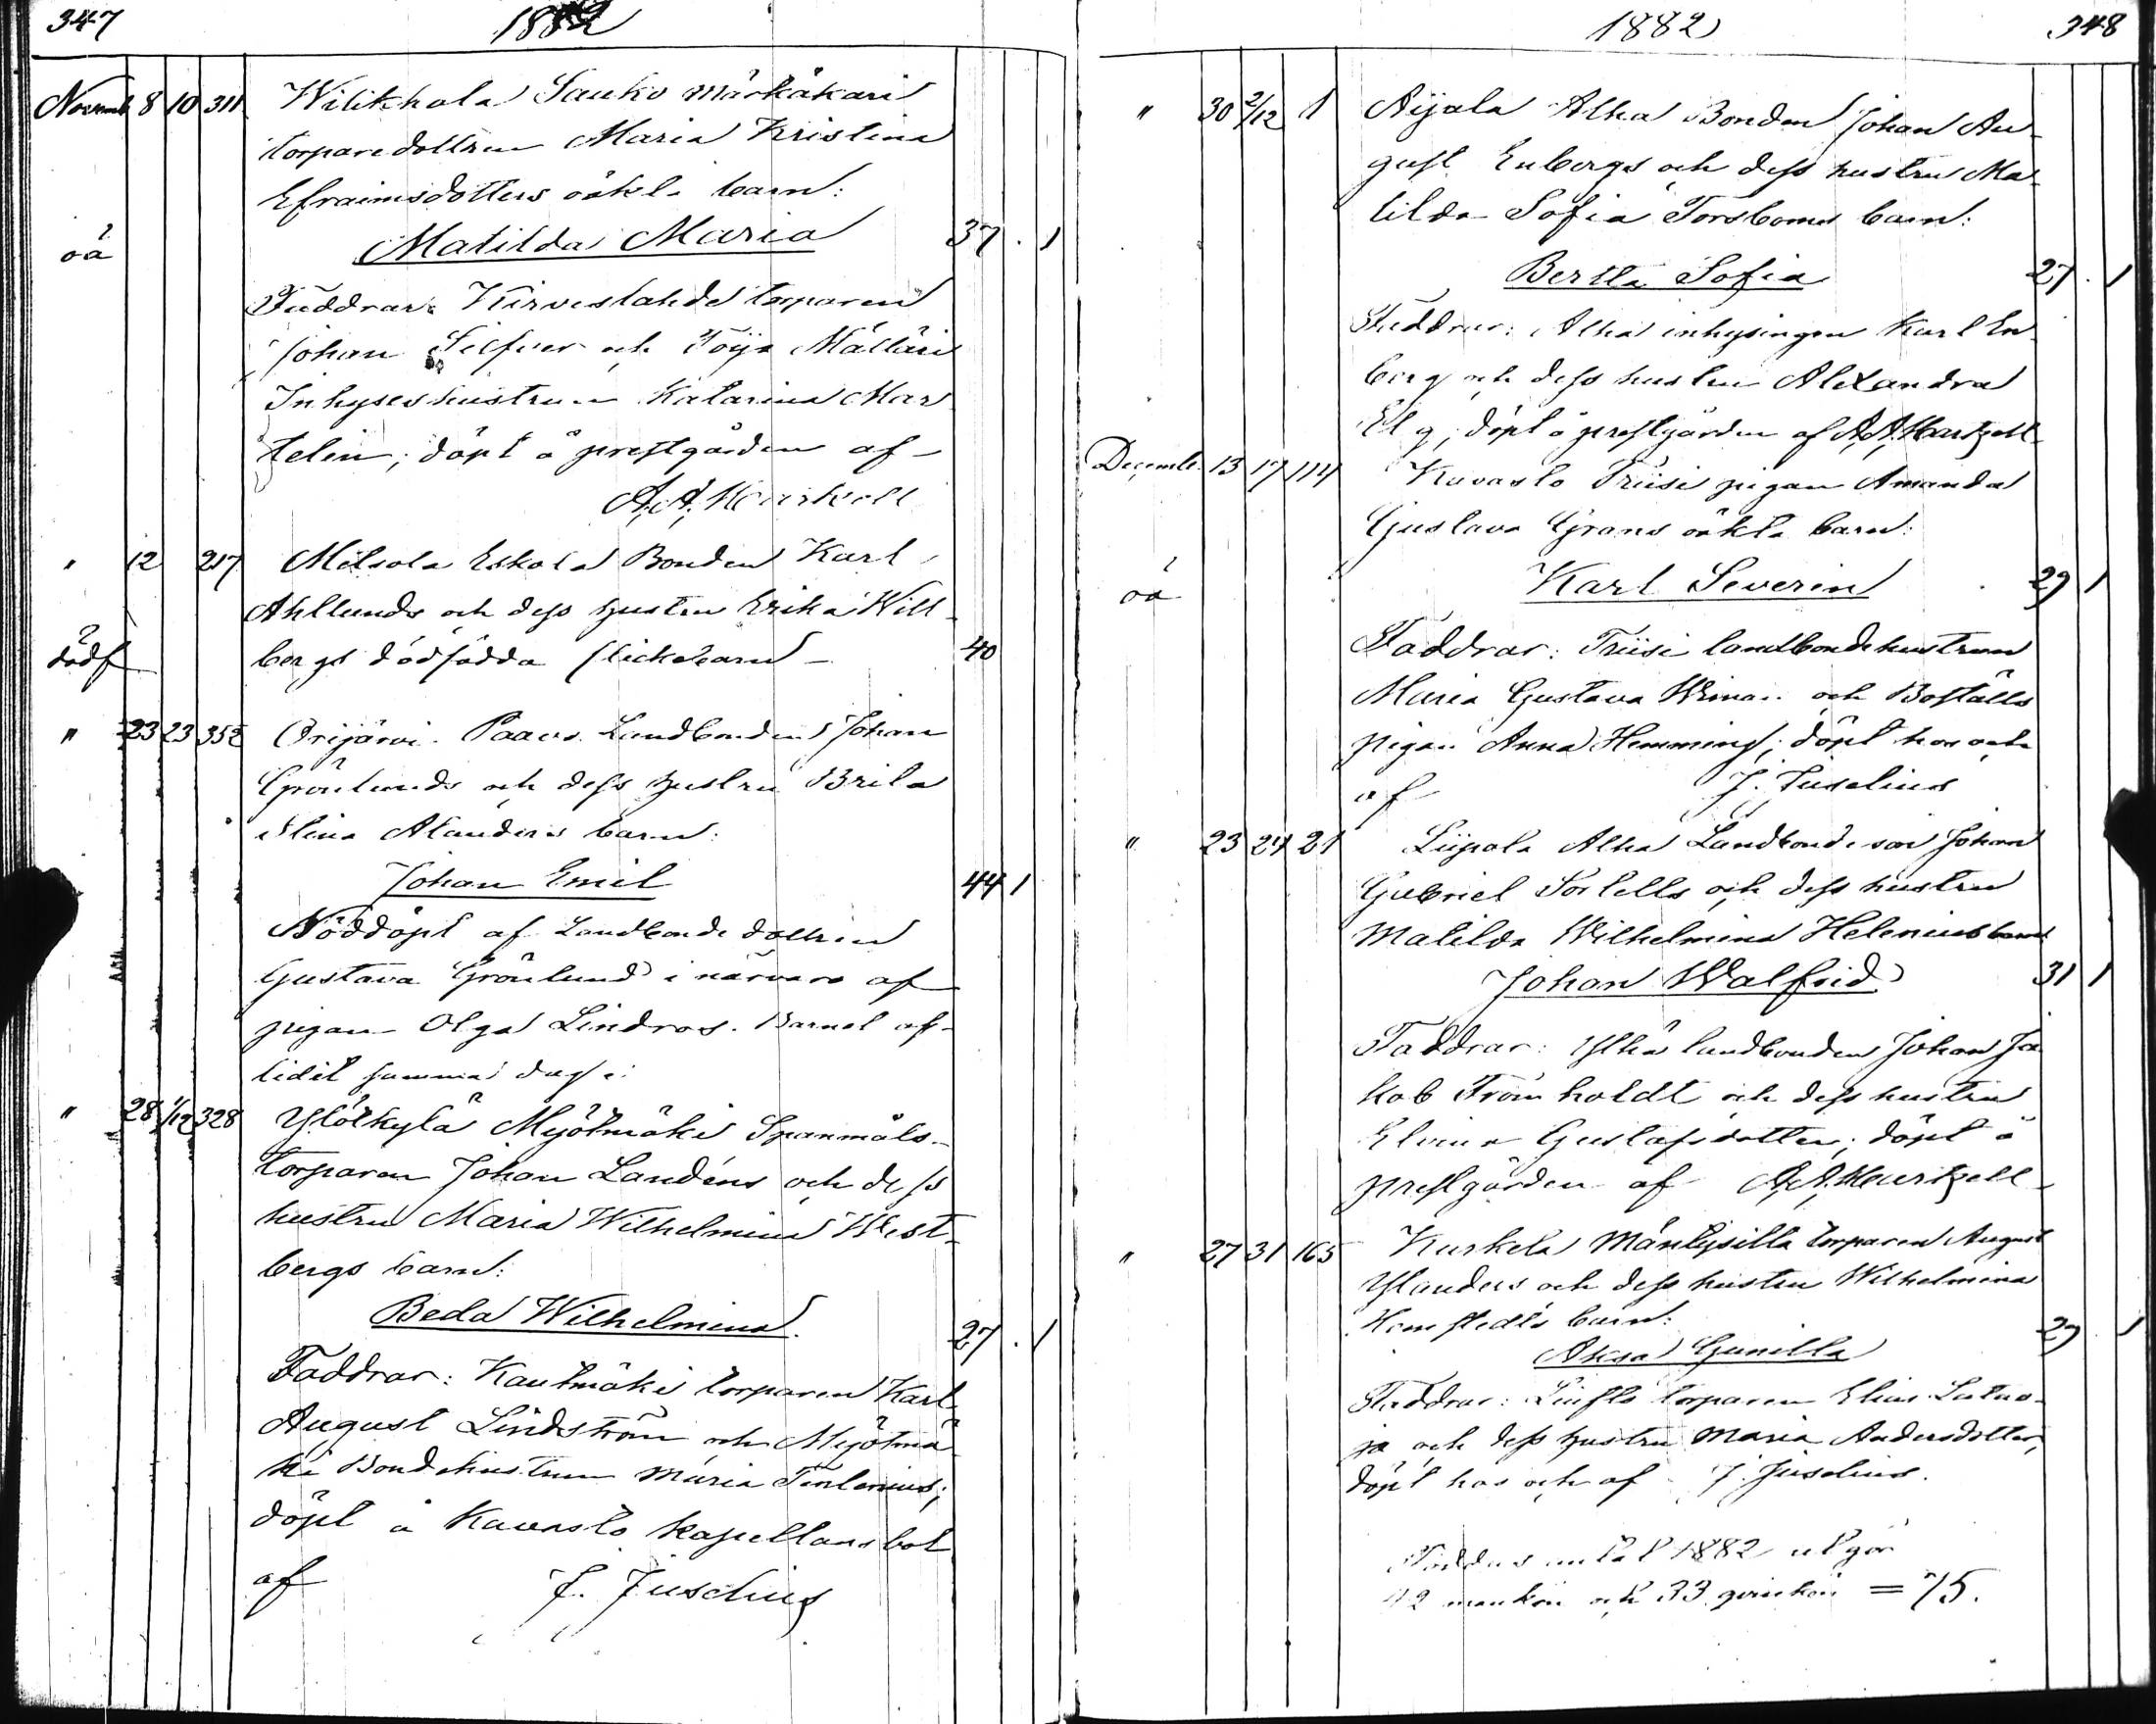 347 1882
Novemb 8 10 311 Wilikkala Sauko Märkäkari
torparedottren Maria Kristina
Efraimsdotters oäkta barn:
oä Matilda Maria 37 . 1
Faddrar: Kirveslahde torparen
Johan Silfver och Töija Mälläri
Inhyseshustrun Katarina Mar
telin; döpt å prestgården af
A. A. Hartzell
" 12 217 Metsola Eskola Bonden Karl
Ahllunds och dess hustru Erika Will
dödf bergs dödfödda flickebarn 40
" 23 23 352 Orijärvi Paavo Landbonden Johan
Grönlunds och dess hustru Brita
Stina Alanders barn:
Johan Emil 44 1
Nöddöpt af Landbonde dottren
Gustava Grönlund i närvaro af
pigan Olga Lindros. Barnet af-
lidit samma dag.
" 28 1/12 328 Ylöskylä Myötmäki Spanmåls-
torparen Johan Landéns och dess
hustru Maria Wilhelmina West-
bergs barn:
Beda Wilhelmina. 27 . 1
Faddrar: Kautmäki torparen Karl
August Lindström och Myötmä
ki Bondehustrun Maria Terlenius;
döpt å Kavasto kapellansbol
af J. Juselius
1882 348
" 30 2/12 1 Äijälä Alha Bonden Johan Au-
gust Enbergs och dess hustru Ma-
tilda Sofia Torsboms barn:
Berta Sofia 27 . 1
Faddrar: Alha inhysingen Karl En
berg och dess hustru Alexandra
Elg; döpt å prestgården af A. A. Hartzell
Decembr. 13 17 114 Kavasto Triisi pigan Amanda
Gustava Grans oäkta barn:
oä Karl Severin 29 1
Faddrar: Triisi landbondehustrun
Maria Gustava Wiman och Boställs
pigan Anna Hemming; döpt hos och
af J. Juselius
" 23 24 21 Liipola Alha Landbondeson Johan
Gabriel Sortells och dess hustru
Matilda Wilhelmina Helenius barn
Johan Walfrid 31 1
Faddrar: Alha landbonden Johan Ja
kob Frömholdt och dess hustru
Elvina Gustafsdotter; döpt å
prestgården af A. A. Hartzell
" 27 31 165 Kurkela Mäntysilta torparen August
Ylanders och dess hustru Wilhelmina
Hemstedts barn:
Aksa Gunilla 29 1
Faddrar: torparen Elias
och dess hustru Maria Andersdotter,
döpt hos och af J. Juselius.
Föddas antal 1882 utgör
42 mankön och 33 qvinkön = 75.